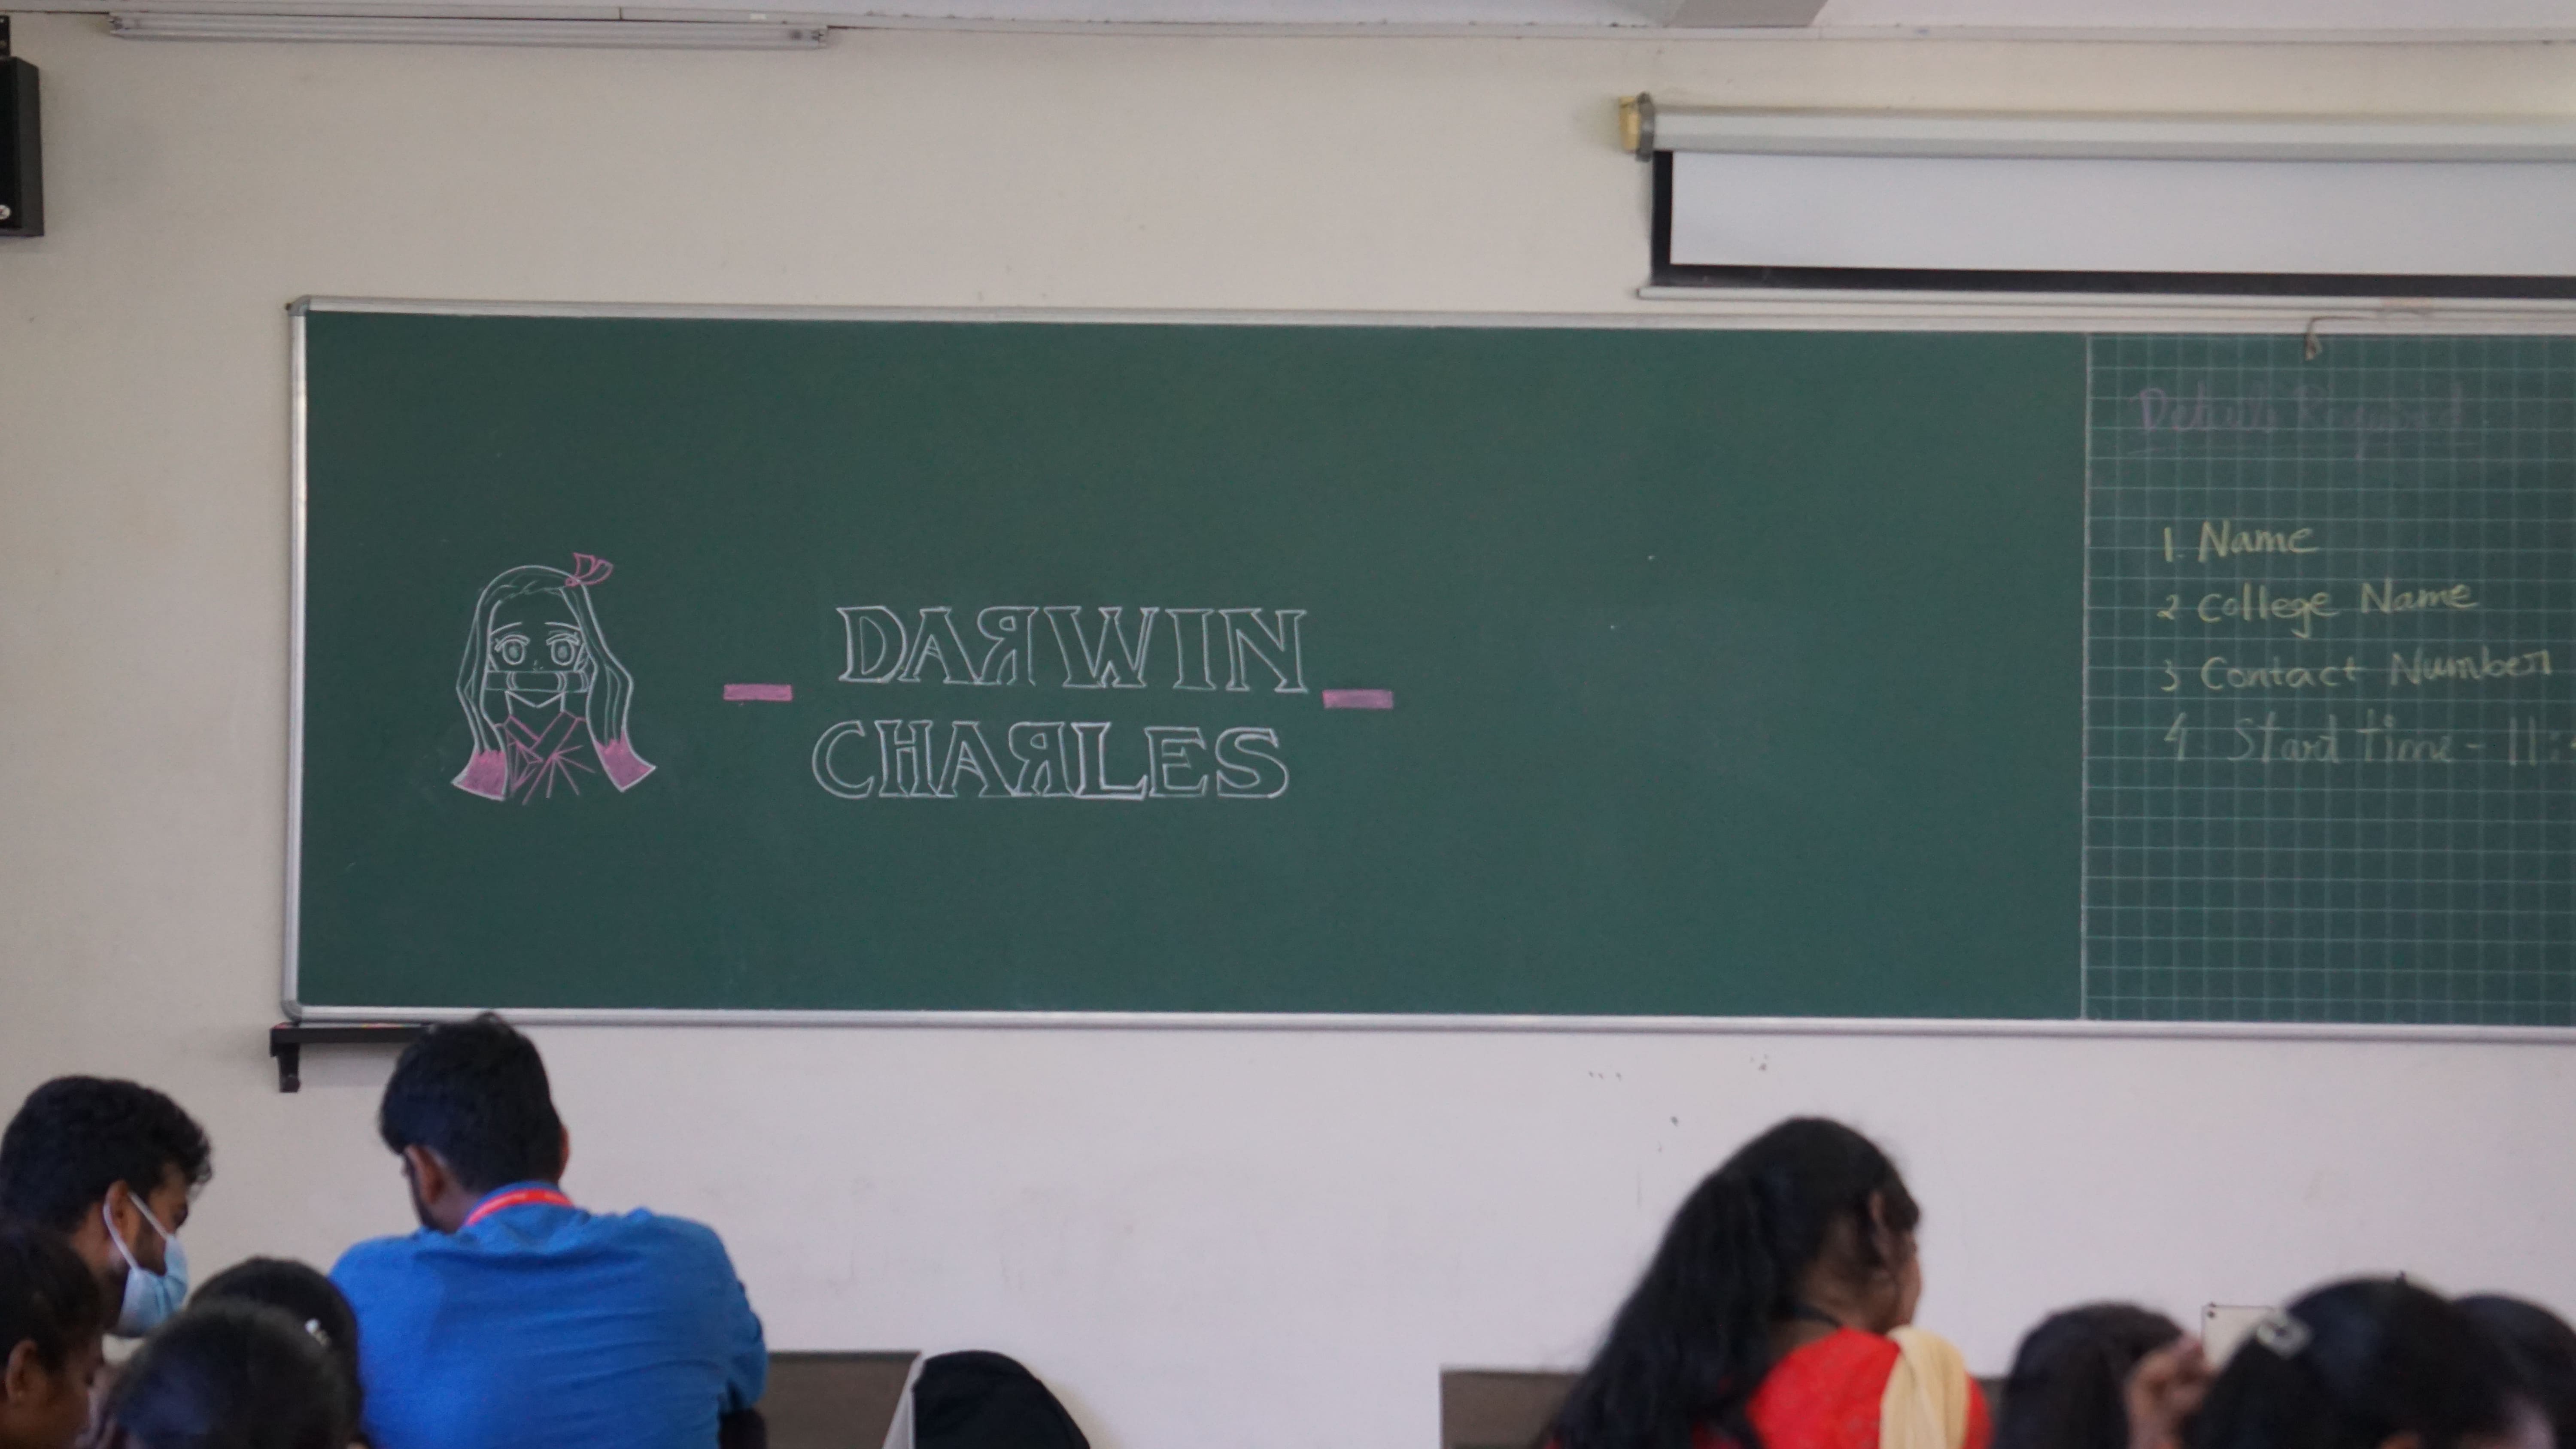 DARWIN
CHARLES
Details Required
1. Name
2 College Name
3 Contact Number
4 Start time - 11: